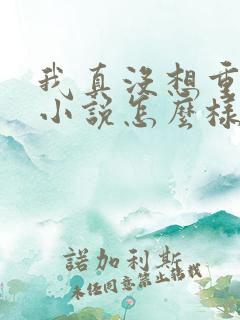 我真没想重
小说怎麼樣
諾加利斯
未经同意禁止转载